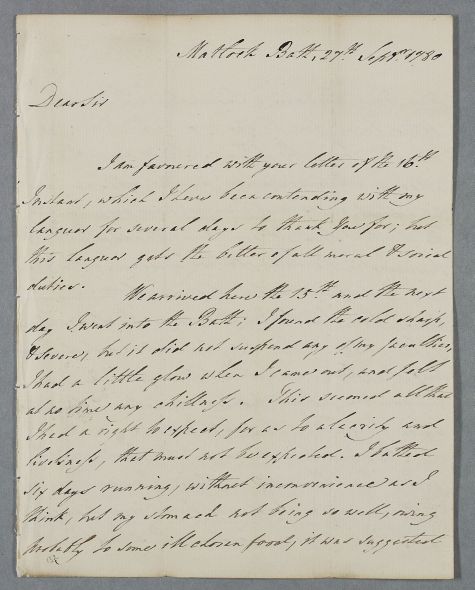 Matlock Bath, 27th Septr. 1780
Dear Sir
I am favoured with your letter of the 16th
Instant, which I have been contending with my
languor for several days to thank You for; but
this languor gets the better of all moral & social
duties. We arrived here the 15th and the next
day I went into the Bath; I found the cold sharp,
& severe, but it did not suspend any of my faculties,
I had a little glow when I came out, and felt
at no time any chillness. This seemed all that
I had a right to expect, for as to alacrity and
liveliness, that must not be expected. I bathed
six days running, without inconvenience as I
think, but my stomach not being so well, owing
probably to some ill chosen food, it was suggested